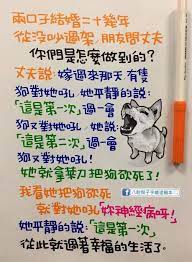 兩口子結婚二十幾年
從沒吵過架,朋友問丈夫
你們是怎麼做到的?
丈夫說:嫁過來那天有隻
狗對她吼,她平靜的說:
「這是第一次」過一會
狗又對她吼!她說:
「這是第二次」過一會
狗又對她吼!
她就拿菜刀把狗砍死!
我看她把狗砍死
就對她吼「妳神經病呀!」
她平靜的說:「這是第一次」
從此就過著幸福的生活了。